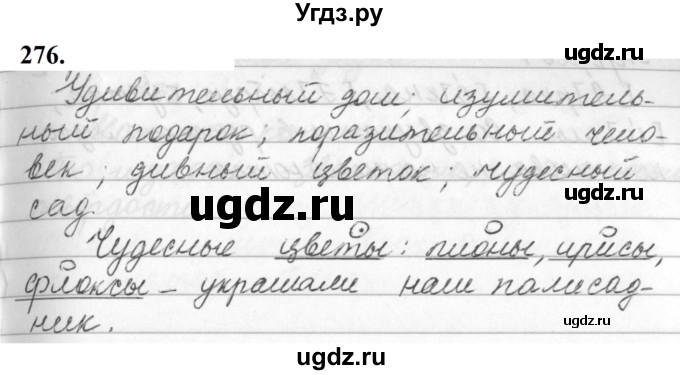 Угдз.ру
276.
ugdz.ru ugdz.ru
Удивительный дом; изумитель-
ный подарок; поразительный чело-
век; дивный цветок; чудесный
ugdz.ru
сад.
Чудесные цветы: пионы, ирисы,
флоксы – украшали наш палисад-
ник.
ugdz.ru ugdz.ru
ugdz.ru